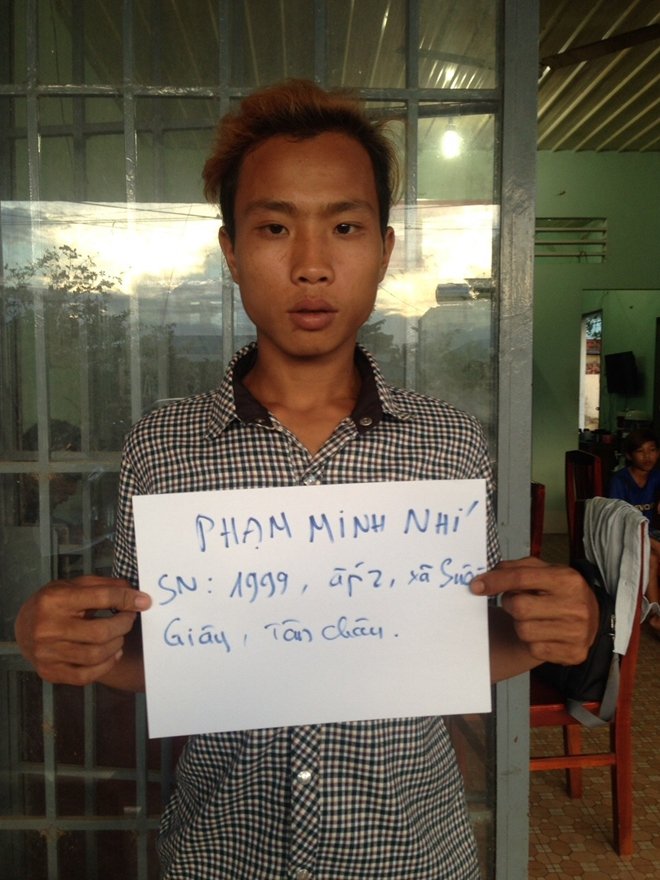 PHẠM MINH NHÍ
SN: 1999, ấp 2, xã Suối
Giây, Tân Châu.